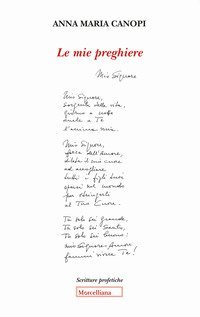 ANNA MARIA CANOPI
Le mie preghiere
Mio Signore
Mio Signore,
sorgente della vita,
giorno e notte
anela a Te
l'anima mia.
Mio Signore,
dell'Amore,
dilata il mio cuore
ad accogliere
tutti i figli tuoi
sparsi nel mondo
per stringerli
al Tuo Cuore.
Tu solo sei grande,
Tu solo sei Santo,
Tu solo sei buono:
mio Signore Amore,
fammi vivere Te!
Scritture profetiche
Morcelliana